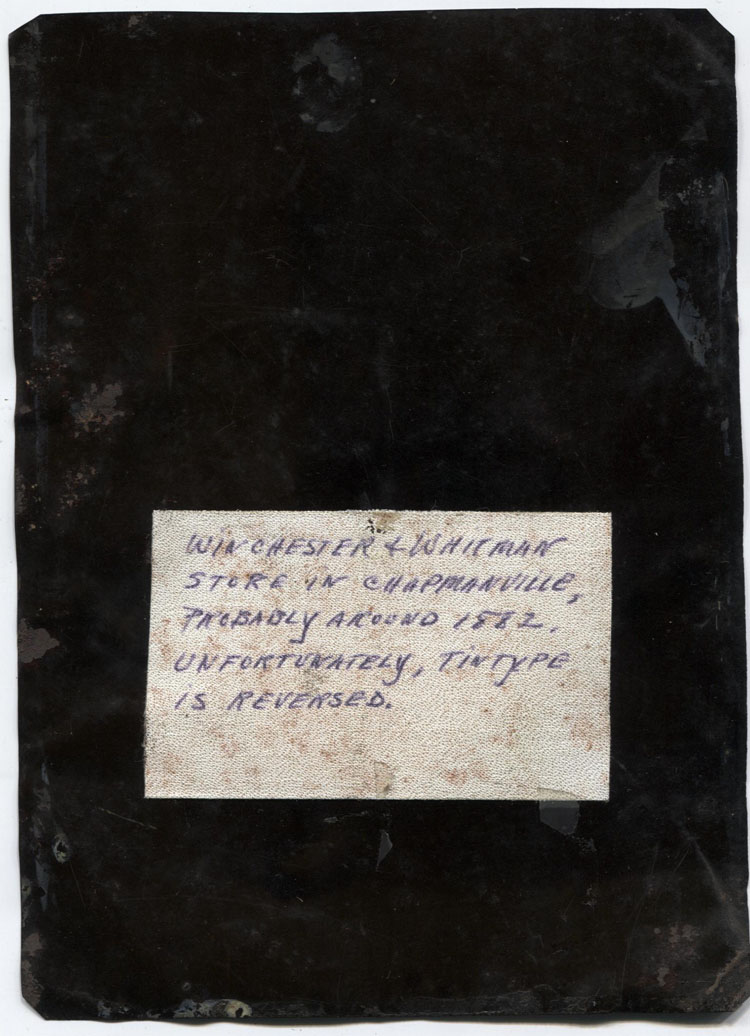 WINCHESTER & WHITMAN
STORE IN CHAPMANVILLE,
PROBABLY AROUND 1882.
UNFORTUNATELY, TINTYPE
IS REVERSED.